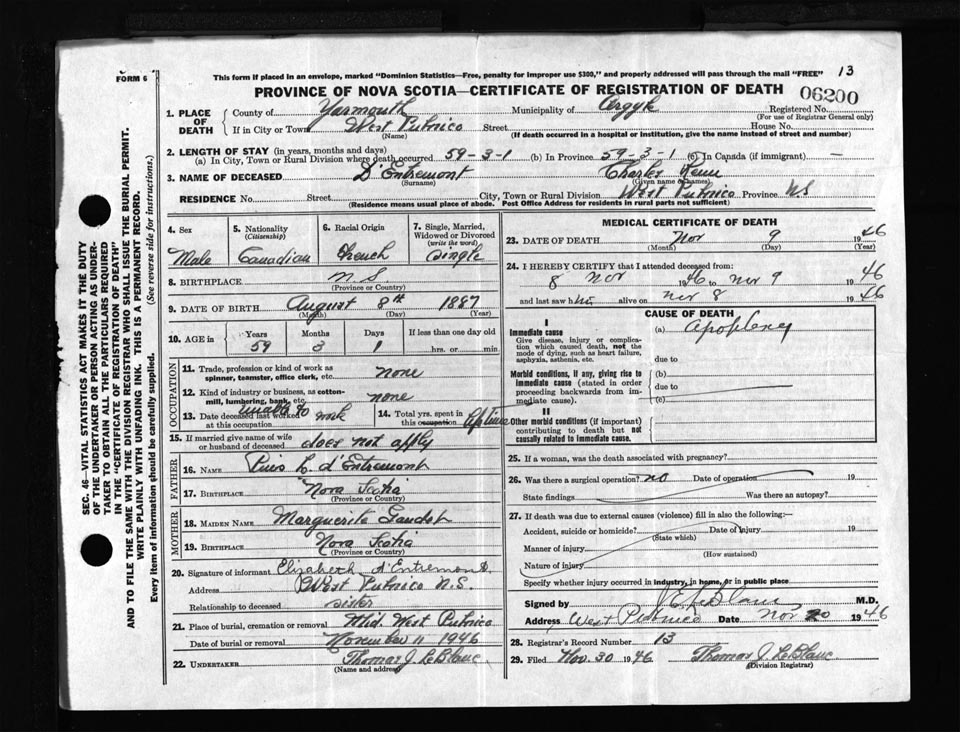 FORM 6
This form if placed in an envelope, marked "Dominion Statistics—Free, penalty for improper use $300," and properly addressed will pass through the mail "FREE"
13
PROVINCE OF NOVA SCOTIA—CERTIFICATE OF REGISTRATION OF DEATH
06200
1. PLACE OF DEATH
County of Yarmouth Municipality of Argyle Registered No.
(For use of Registrar General only)
If in City or Town West Pubnico Street House No.
(Name) (If death occurred in a hospital or institution, give the name instead of street and number)
2. LENGTH OF STAY (in years, months and days)
(a) In City, Town or Rural Division where death occurred 59-3-1 (b) In Province 59-3-1 (c) In Canada (if immigrant) —
3. NAME OF DECEASED D'Entremont Charles Remi
(Surname) (Given name or names)
RESIDENCE No. Street City, Town or Rural Division West Pubnico Province N.S
(Residence means usual place of abode. Post Office Address for residents in rural parts not sufficient)
4. Sex
Male
5. Nationality
(Citizenship)
Canadian
6. Racial Origin
French
7. Single, Married, Widowed or Divorced
(write the word)
Single
8. BIRTHPLACE N.S.
(Province or Country)
9. DATE OF BIRTH August 8th 1887
(Month) (Day) (Year)
10. AGE in Years Months Days If less than one day old
59 3 1 hrs. or min.
OCCUPATION
11. Trade, profession or kind of work as spinner, teamster, office clerk, etc. none
12. Kind of industry or business, as cotton-mill, lumbering, bank, etc. none
13. Date deceased last worked at this occupation unable to work
14. Total yrs. spent in this occupation
15. If married give name of wife or husband of deceased does not apply
FATHER
16. NAME Pius L. d'Entremont
17. BIRTHPLACE Nova Scotia
(Province or Country)
MOTHER
18. MAIDEN NAME Marguerite
19. BIRTHPLACE Nova Scotia
(Province or Country)
20. Signature of informant Elizabeth d'Entremont
Address West Pubnico N.S.
Relationship to deceased sister
21. Place of burial, cremation or removal Mid. West Pubnico
Date of burial or removal November 11 1946
22. UNDERTAKER Thomas J. LeBlanc
(Name and address)
MEDICAL CERTIFICATE OF DEATH
23. DATE OF DEATH Nov 9 1946
(Month) (Day) (Year)
24. I HEREBY CERTIFY that I attended deceased from:
8 Nov 1946 to Nov 9 1946
and last saw him alive on Nov 8 1946
CAUSE OF DEATH
I
Immediate cause
Give disease, injury or complication which caused death, not the mode of dying, such as heart failure, asphyxia, asthenia, etc.
(a) Apoplexy
due to
Morbid conditions, if any, giving rise to immediate cause (stated in order proceeding backwards from immediate cause).
(b)
due to
(c)
II
Other morbid conditions (if important) contributing to death but not causally related to immediate cause.
25. If a woman, was the death associated with pregnancy?
26. Was there a surgical operation? no Date of operation 19
State findings Was there an autopsy?
27. If death was due to external causes (violence) fill in also the following:—
Accident, suicide or homicide? Date of Injury 19
(State which)
Manner of injury
(How sustained)
Nature of injury
Specify whether injury occurred in industry, in home, or in public place
Signed by LeBlanc M.D.
Address West Pubnico Date Nov 20 1946
28. Registrar's Record Number 13
29. Filed Nov. 30 1946 Thomas J. LeBlanc
(Division Registrar)
SEC. 46—VITAL STATISTICS ACT MAKES IT THE DUTY
OF THE UNDERTAKER OR PERSON ACTING AS UNDER-
TAKER TO OBTAIN ALL THE PARTICULARS REQUIRED
IN THE "CERTIFICATE OF REGISTRATION OF DEATH"
AND TO FILE THE SAME WITH THE DIVISION REGISTRAR WHO SHALL ISSUE THE BURIAL PERMIT.
WRITE PLAINLY WITH UNFADING INK. THIS IS A PERMANENT RECORD.
Every item of information should be carefully supplied. (See reverse side for instructions.)